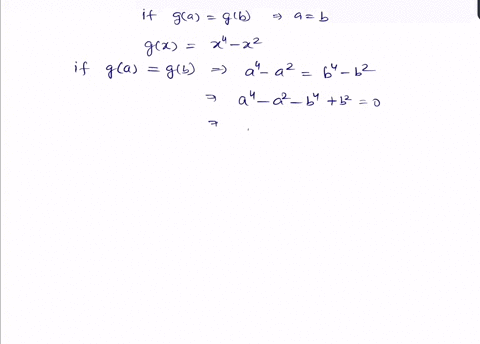 if g(a) = g(b) ⇒ a = b
g(x) = x⁴ - x²
if g(a) = g(b) ⇒ a⁴ - a² = b⁴ - b²
⇒ a⁴ - a² - b⁴ + b² = 0
⇒